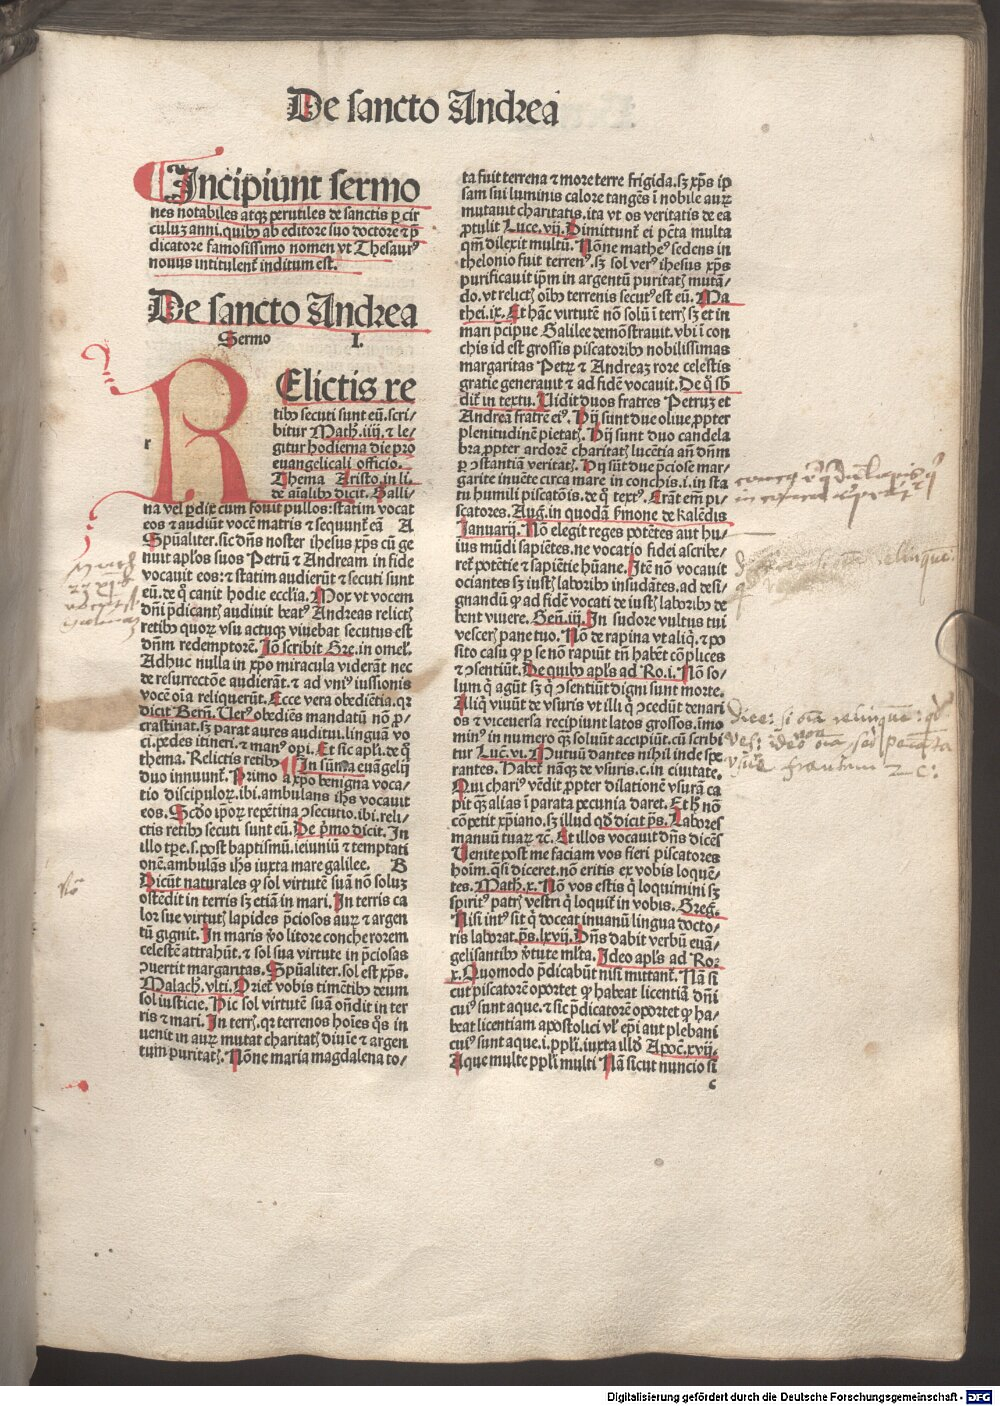 De sancto Andrea
Incipiunt sermo
nes notabiles atqꝫ perutiles de sanctis ꝑ cir
culuꝫ anni. quibꝰ ab editore suo doctore ⁊ p̄
dicatore famosissimo nomen vt Thesaurꝰ
nouus intitulent᷑ inditum est.
De sancto Andrea
Sermo I.
RElictis re
tibꝰ secuti sunt eū. scri/
bitur Math̓. iiij. ⁊ le/
gitur hodierna die pro
euangelicali officio.
Thema Aristo. in li.
de aīalibꝰ dicit. Galli/
na vel ꝑdix cum fouit pullos: statim vocat
eos ⁊ audiūt vocē matris ⁊ sequunt᷑ eā A
Spūaliter. sic dn̄s noster ihesus xp̄s cū ge
nuit apl̓os suos Petrū ⁊ Andream in fide
vocauit eos: ⁊ statim audierūt ⁊ secuti sunt
eū. de qͦ canit hodie eccl̓ia. Mox vt vocem
dn̄i p̄dicantꝭ audiuit beatꝰ Andreas relictꝭ
retibꝰ quoꝝ vsu actuqꝫ viuebat secutus est
dn̄m redemptorē. Iō scribit Gre. in omel̓.
Adhuc nulla in xp̄o miracula viderāt nec
de resurrectōe audierāt. ⁊ ad vniꝰ iussionis
vocē oīa reliquerūt. Ecce vera obediētia. qꝛ
dicit Bern̄. Verꝰ obediēs mandatū nō ꝓ/
crastinat. sꝫ parat aures auditui. linguā vo
ci. pedes itineri. ⁊ manꝰ opi. Et sic apl̓i. de qͦ
thema. Relictis retibꝰ ¶ In sūma euāgelij
duo innuunt᷑. Primo a xp̄o benigna voca/
tio discipuloꝝ. ibi. ambulans ih̄s vocauit
eos. Scd̓o ip̄oꝝ repētina ↄsecutio. ibi. reli/
ctis retibꝰ secuti sunt eū. De p̄mo dicit. In
illo tꝑe. s. post baptismū. ieiuniū ⁊ temptati
onē. ambulās ih̄s iuxta mare galilee. B
Dicūt naturales ꝙ sol virtutē suā nō soluꝫ
ostēdit in terris sꝫ etiā in mari. In terris ca
lor sue virtutꝭ lapides p̄ciosos auꝝ ⁊ argen
tū gignit. In maris v̓o litore conche rorem
celestē attrahūt. ⁊ sol sua virtute in p̄ciosas
ↄuertit margaritas. Spūaliter. sol est xp̄s.
Malach̓. vlti. Oriet᷑ vobis timētibꝰ deum
sol iusticie. Hic sol virtutē suā on̄dit in ter
ris ⁊ mari. In terrꝭ. qꝛ terrenos hoīes qͦs in
uenit in auꝝ mutat charitatꝭ diuīe ⁊ argen
tum puritatꝭ. Nōne maria magdalena to/
ta fuit terrena ⁊ more terre frigida. sꝫ xp̄s ip
sam sui luminis calore tangēs ī nobile auꝝ
mutauit charitatis. ita vt os veritatis de ea
ꝓtulit Luce. vij. Dimittunt᷑ ei pctā multa
qm̄ dilexit multū. Nōne matheꝰ sedens in
thelonio fuit terrenꝰ. sꝫ sol verꝰ ihesus xp̄s
purificauit ip̄m in argentū puritatꝭ mutā/
do. vt relictꝭ oībꝰ terrenis secutꝰ est eū. Ma
thei. ix. Et hāc virtutē nō solū ī terrꝭ sꝫ et in
mari p̄cipue Galilee demōstrauit. vbi ī con
chis id est grossis piscatoribꝰ nobilissimas
margaritas Petꝝ ⁊ Andreaꝫ rore celestis
gratie generauit ⁊ ad fidē vocauit. De qͦ sb̓
dit᷑ in textu. Vidit duos fratres Petruꝫ et
Andreā fratrē eiꝰ. Hij sunt due oliue ꝓpter
plenitudinē pietatꝭ. Hij sunt duo candela
bra ꝓpter ardorē charitatꝭ lucētia an̄ dn̄m
ꝑ ↄstantiā veritatꝭ. Hij sūt due p̄ciose mar/
garite inuēte circa mare in conchis. i. in sta
tu humili piscatōis. de qͦ textꝰ. Erāt em̄ pi/
scatores. Aug. in quodā s̓mone de kalēdis
Januarij. Nō elegit reges potētes aut hu/
ius mūdi sapiētes. ne vocatio fidei ascribe/
ret᷑ potētie ⁊ sapiētie hūane. Itē nō vocauit
ociantes sꝫ iustꝭ laboribꝰ insudātes. ad desi/
gnandū ꝙ ad fidē vocati de iustꝭ laboribꝰ de
bent viuere. Gen̄. iij. In sudore vultus tui
vescerꝭ pane tuo. Nō de rapina vt aliqͥ. ⁊ po
sito casu ꝙ ꝑ se nō rapiūt tn̄ habēt cōplices
⁊ ↄsentiūt. De quibꝰ apl̓s ad Ro. i. Nō so/
lum qͥ agūt sꝫ qͥ ↄsentiūt digni sunt morte.
Aliqͥ viuūt de vsuris vt illi qͥ ↄcedūt denari
os ⁊ viceuersa recipiunt latos grossos. imo
minꝰ in numero qͣꝫ soluūt accipiūt. cū scribi
tur Luc̄. vi. Mutuū dantes nihil inde spe
rantes. Habet᷑ nāqꝫ de vsuris. c. in ciuitate.
Qui chariꝰ vēdit ꝓpter dilationē vsurā ca
pit qͣꝫ alias ī parata pecunia daret. Et hꝭ nō
cōpetit xp̄iano. sꝫ illud qd̓ dicit ps̄. Labores
manuū tuaꝝ ⁊c̄. Et illos vocauit dn̄s dicēs
Venite post me faciam vos fieri piscatores
hoīm. qͣsi diceret. nō eritis ex vobis loquē/
tes. Math̓. x. Nō vos estis qͥ loquimini sꝫ
spiritꝰ patrꝭ vestri qͥ loquit᷑ in vobis. Greg̓.
Nisi intꝰ sit qͥ doceat inuanū lingua docto/
ris laborat. ps̄. lxvij. Dn̄s dabit verbū euā/
gelisantibꝰ v̓tute ml̓ta. Ideo apl̓s ad Ro.
x. Quomodo p̄dicabūt nisi mutant᷑. Nā si
cut piscatorē oportet ꝙ habeat licentiā dn̄i
cuiꝰ sunt aque. ⁊ sic p̄dicatorē oportet ꝙ ha/
beat licentiam apostolici vl̓ ep̄i aut plebani
cuiꝰ sunt aque. i. ppl̓i. iuxta illd̓ Apoc̄. xvij.
Aque multe ppl̓i multi Nā sicut nuncio si
c